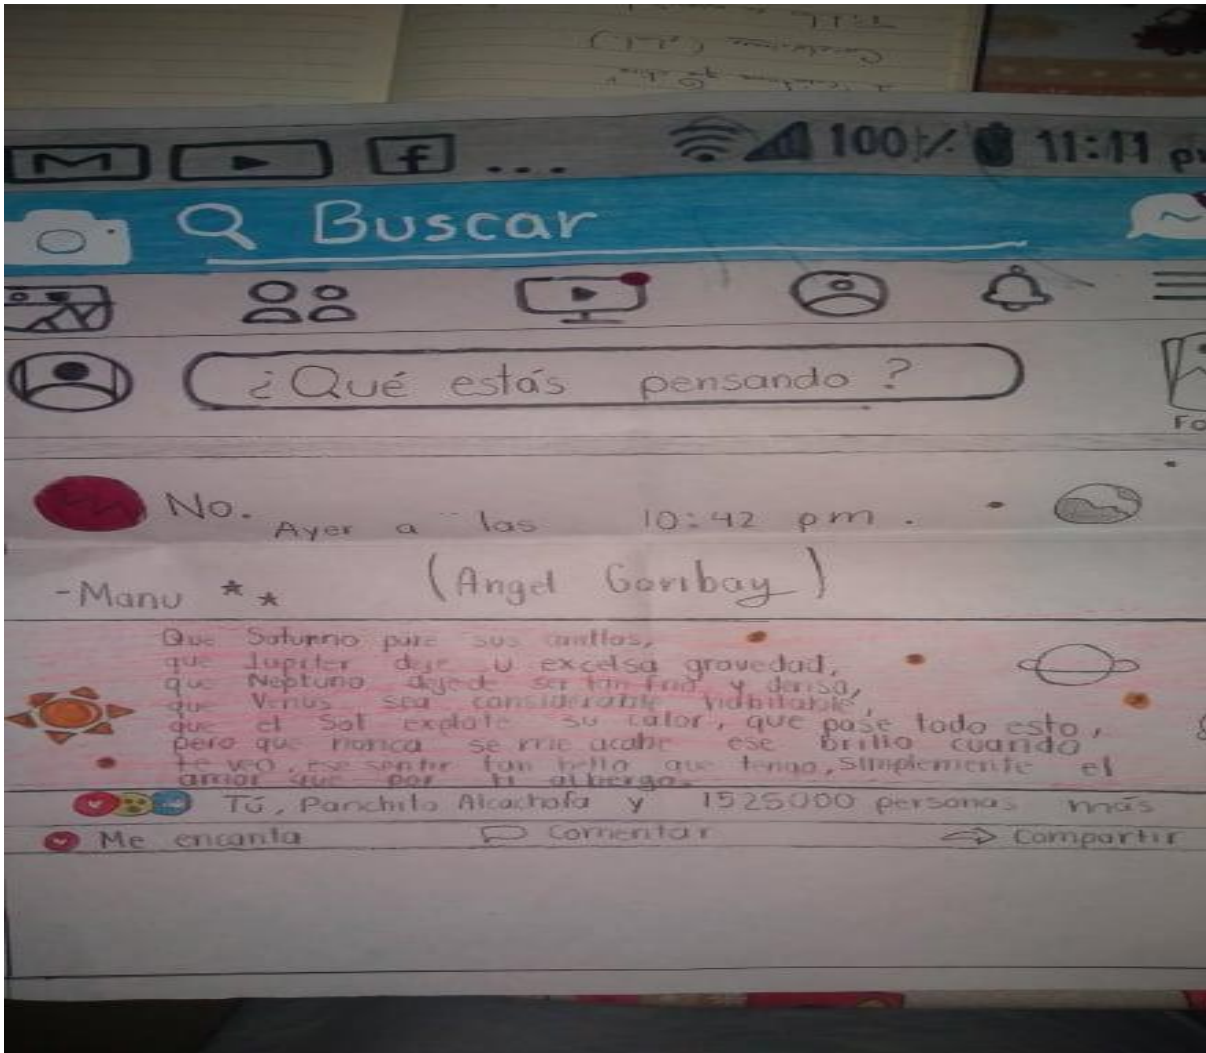 100% 11:11
Buscar
¿Qué estás pensando?
No.
Ayer a las 10:42 pm.
-Manu ** (Angel Garibay)
Que Saturno pare sus anillos,
que Jupiter deje su excelsa gravedad,
que Neptuno deje de ser tan frio y densa,
que Venus sea considerable habitable,
que el Sol explote su calor, que pase todo esto,
pero que nunca se me acabe ese brillo cuando
te veo, ese sentir tan bello que tengo, simplemente el
amor que por ti albergo.
Tú, Panchito Alcachofa y 1525000 personas más
Me encanta Comentar Compartir